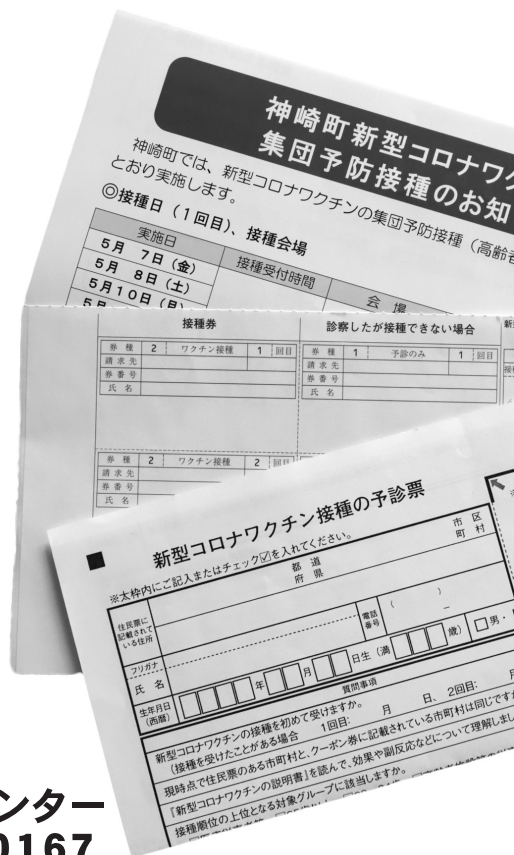 神崎町新型コロナワク
集団予防接種のお知
神崎町では、新型コロナワクチンの集団予防接種（高齢者
とおり実施します。
◎接種日（1回目）、接種会場
実施日 接種受付時間 会場
5月 7日（金）
5月 8日（土）
5月10日（月）
接種券 診察したが接種できない場合
券種 2 ワクチン接種 1 回目 券種 1 予診のみ 1 回目
請求先 請求先
券番号 券番号
氏名 氏名
券種 2 ワクチン接種 2 回目
請求先
券番号
氏名
新型コロナワクチン接種の予診票
※太枠内にご記入またはチェック☑を入れてください。
住民票に
記載されて
いる住所
都道
府県
市区
町村
フリガナ
氏名
電話
番号
（ ） －
生年月日
（西暦） 年 月 日生（満 歳） □男・
質問事項
新型コロナワクチンの接種を初めて受けますか。
（接種を受けたことがある場合 1回目: 月 日、2回目:
現時点で住民票のある市町村と、クーポン券に記載されている市町村は同じですか
『新型コロナワクチンの説明書』を読んで、効果や副反応などについて理解しまし
接種順位の上位となる対象グループに該当しますか。
ンター
0167